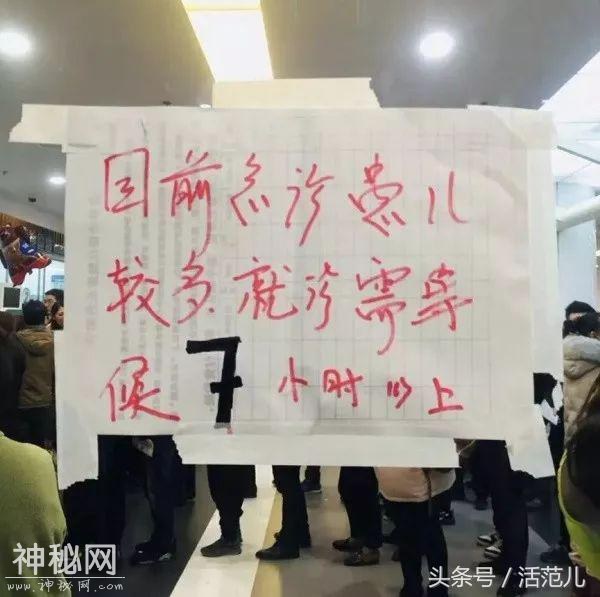 目前急诊患儿
较多就诊需等
候7小时以上
神秘网
www.神秘网.com
头条号／活范儿